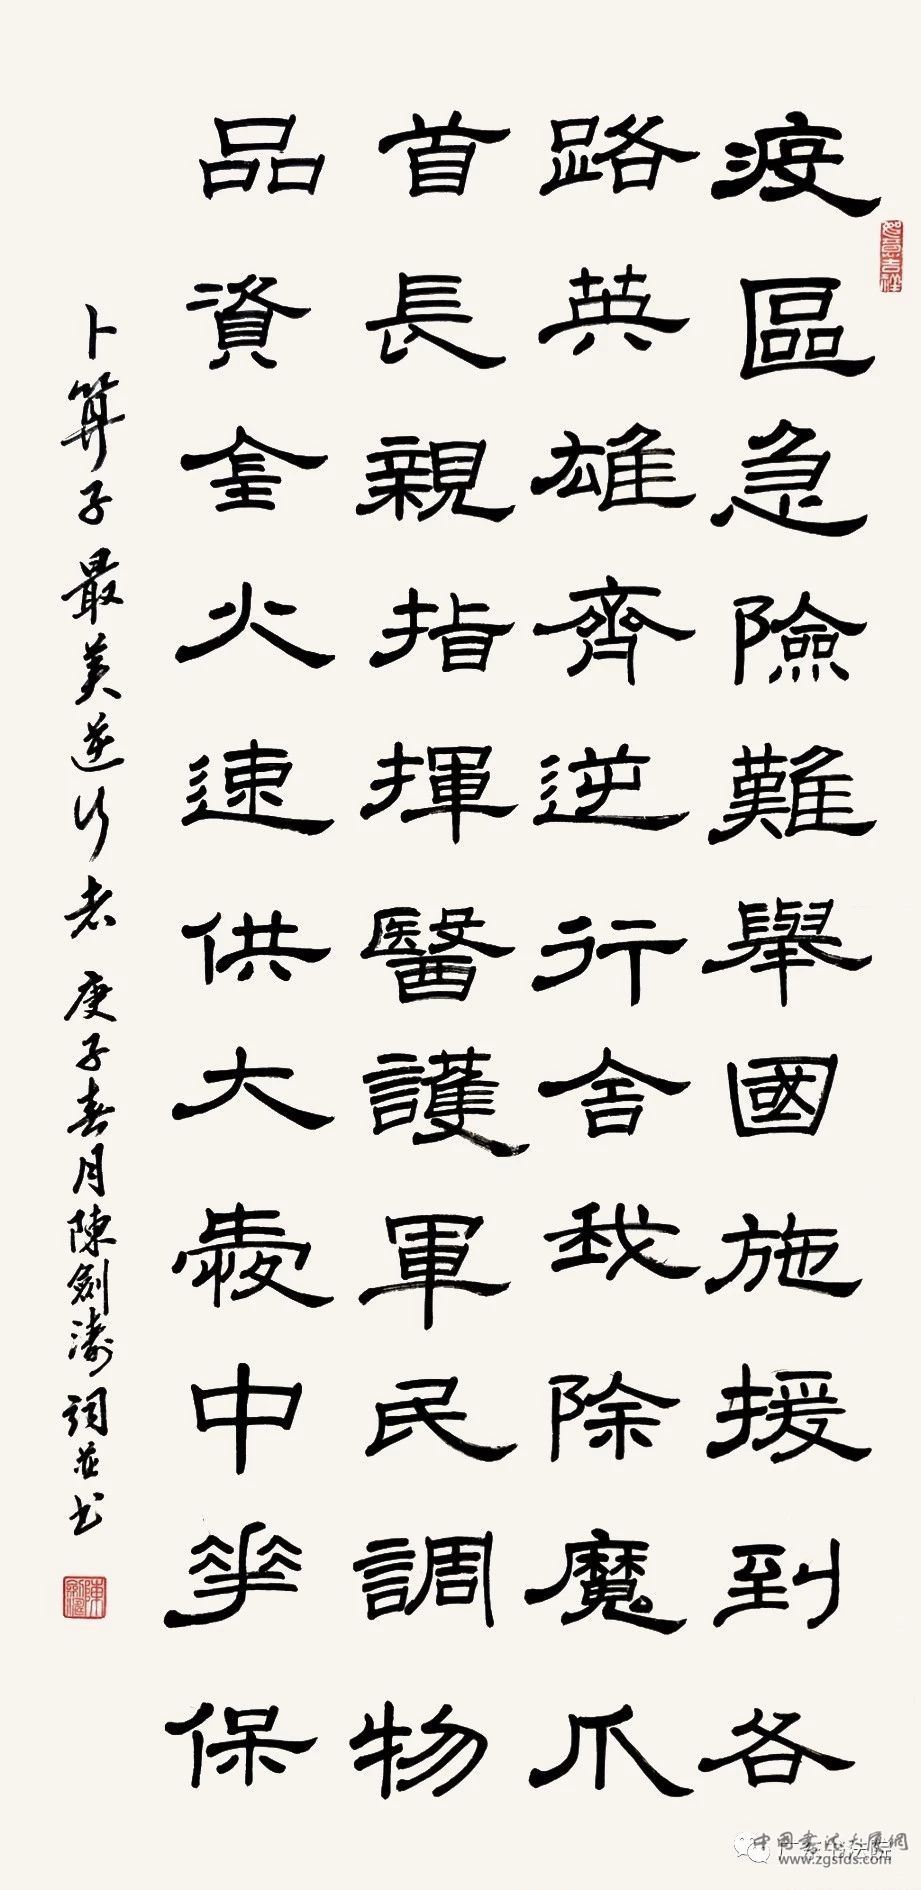 疫區急險難舉國施援到各
路英雄齊逆行舍我除魔爪
首長親指揮醫護軍民調物
品資金火速供大愛中華保
卜算子 最美逆行者 庚子春月陳劍濤詞並书
中国書法大展網
www.zgsfds.com